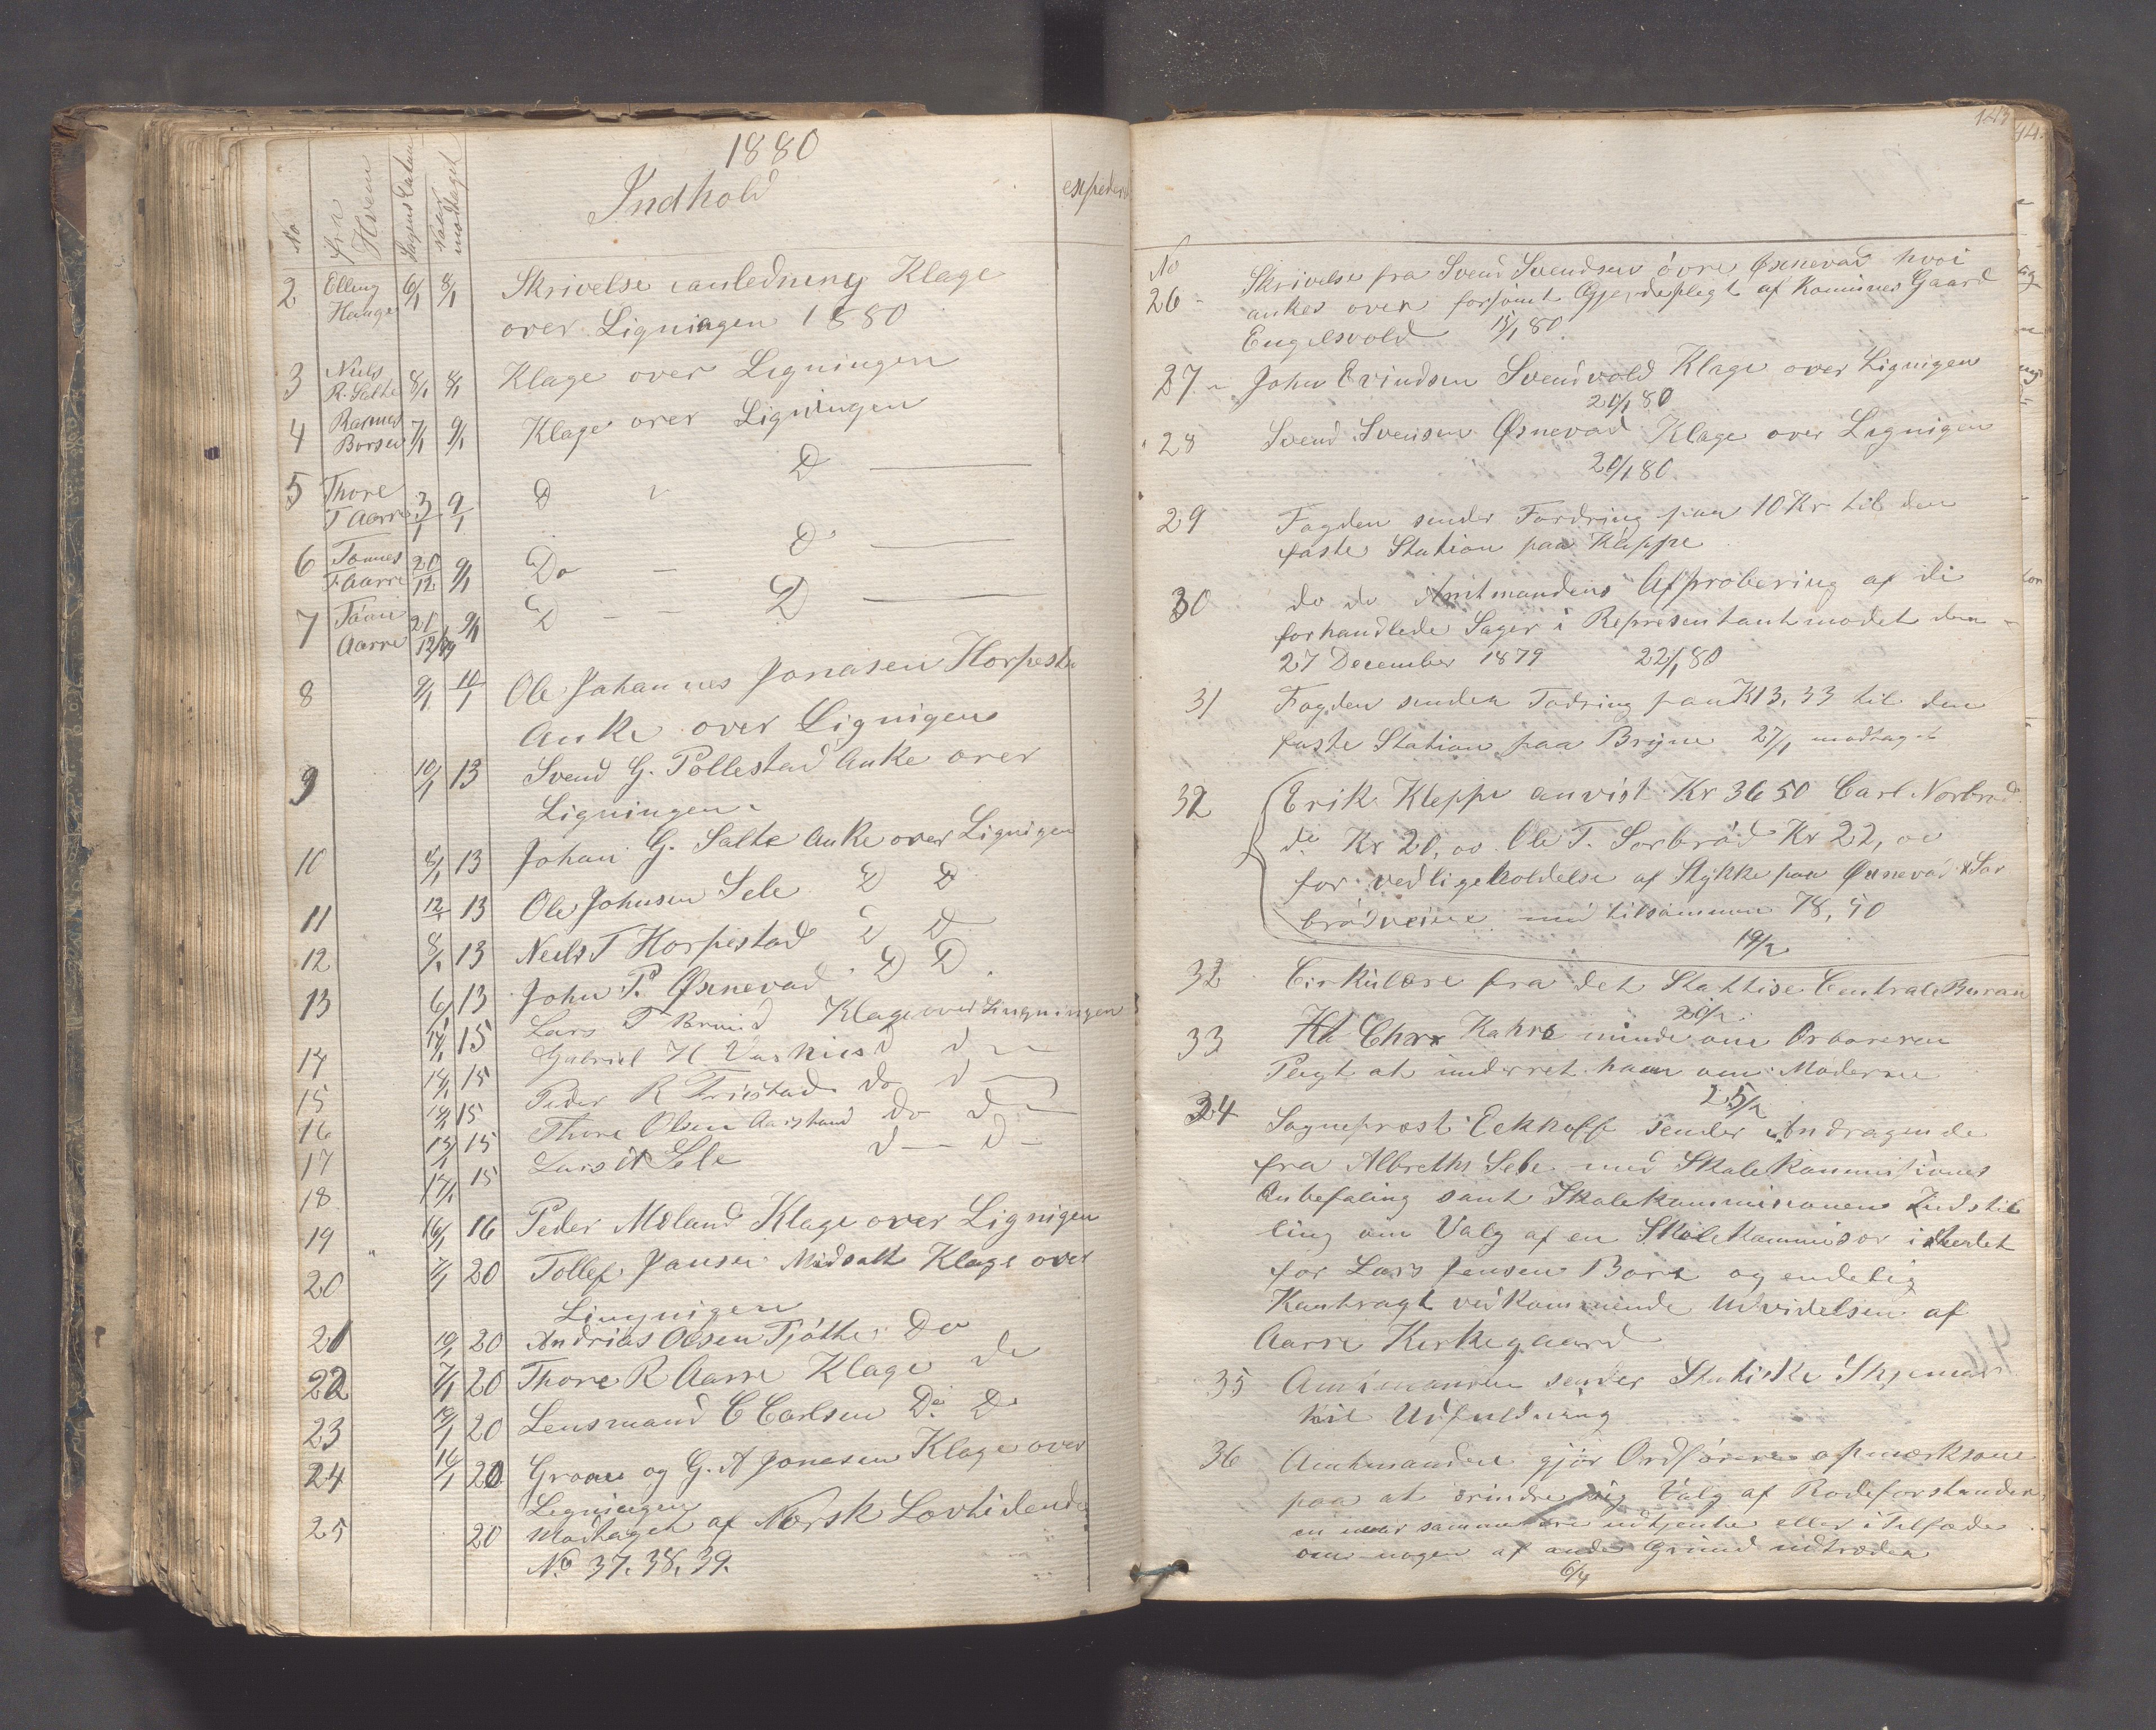 1880
No
fra Hvem
Sagens Datum
naar modtaget
Indhold
2 Elling Hauge 6/1 8/1 Skrivelse i anledning Klage
over Ligningen 1880
3 Niels R. Salte 8/1 8/1 Klage over Ligningen
4 Rasmus Borsen 7/1 9/1 Klage over Ligningen
5 Thore T Aarre 3/1 9/1 D " D
6 Tonnes T Aarre 20/12 9/1 Do — D
7 Aarre 21/12/79 9/1 D — D
8 9/1 10/1 Ole Johannes Jonasen Horpesta
Anke over Lignigen
9 10/1 13 Svend G. Pollestad Anke over
Ligningen
10 8/1 13 Johan G. Salte Anke over Lignigen
11 12/1 13 Ole Johnsen Sele D D
12 8/1 13 Neils T Horpestad D D
13 6/1 13 John P. Øxnevad D D
14/1 15 Lars T Klage over Lingningen
14 14/1 15 Gabriel H d d
15 14/1 15 Peder R Friestad do d
16 13/1 15 Thore Olsen do d
17 14/1 15 Lars Sele d — d —
18
19 16/1 16 Peder Meland Klage over Lignigen
20 7/1 20 Tollef Jansen Midsalt Klage over
Lingnigen
21 19/1 20 Andrias Olsen Tjøtte Do
22 7/1 20 Thore R Aarre Klage do
23 19/1 20 Lensmand C Carlsen Do Do
24 16/1 20 og G. A Jonesen Klage over
Ligningen
25 20 Modtaget af Norsk Lovtidende
No 37. 38. 39.
No
26 Skrivelse fra Svend Svendsen øvre Øxnevad hvor
ankes over forsømt Gjerdeplegt af Komunes Gaard
Engelsvold 15/1 80
27 John Evindsen Svendvold Klage over Lignigen
20/1 80
28 Svend Svensen Øsnevad Klage over Lignigen
20/1 80
29 Fogden sender Fordring paa 10 Kr til den
faste Station paa Kleppe
30 do do Amtmandens Approbering af de
forhandlede Sager i Representantmødet den
27 December 1879 22/1 80
31 Fogden sender Fodring paa K 13,33 til den
faste Station paa Bryne 27/1 modtaget
32 Erik Kleppe anvist Kr 36 50 Carl
do Kr 20,00 Ole T. Sorbrød Kr 22,00
for vedligeholdelse af Stykke paa Øxnevad & Sor
brødveiene med tilsammen 78,50
19/2
32 Cirkulære fra det Stattise Centrale Buran
20/2
33 Chr Kahrs minde om Ordføreren
Pligt at underret ham om Møderne
25/2
34 Sogneprest Eckhoff sender Andragende
fra Albreths Sele med Skolekommisions
Anbefaling samt Skolekommisionens Indstil
ling om Valg af en Skolekommisær i stedet
for Lars Jensen Bore og endelig
Kontragt vedkommende Udvidelsen af
Aarre Kirkegaard
35 Amtmanden sender Statiske Skjemar
til Udfuldning
36 Amtmanden gjør Ordføreren opmærksom
paa at erindre sig Valg af Rodeforstander
en naar samme ere udtjente eller i tilfælde
om nogen af anden Grund udtræder
6/4